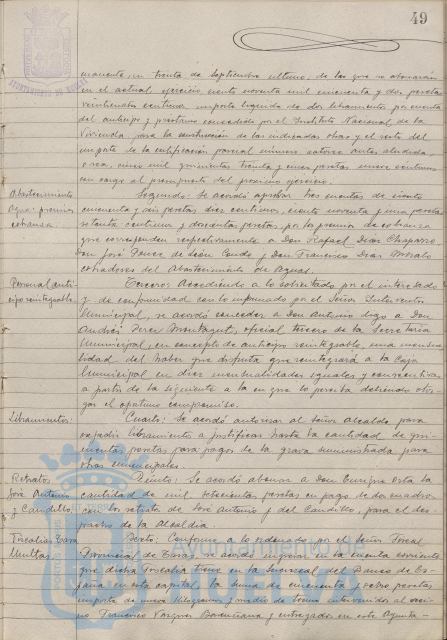 49
AYUNTAMIENTO DE
mamente, en treinta de Septiembre ultimo, de las que se abonarán
en el actual ejercicio, ciento noventa mil cincuenta y dos pesetas
veinticuatro centimos importe liquido de dos libramientos, por cuenta
del anticipo y prestamo concedido por el Instituto Nacional de la
Vivienda para la construcción de las indicadas obras y el resto del
importe de la certificación parcial número catorce antes aludida,
o sea, cinco mil quinientas treinta y cinco pesetas nueve centimos
con cargo al presupuesto del proximo ejercicio.
Abastecimiento
Agua: premios
cobranza.
Segundo: Se acordó aprobar tres cuentas de ciento
cincuenta y seis pesetas diez centimos, ciento noventa y una pesetas
setenta centimos y doscientas pesetas, por la premio de cobranza
que corresponden respectivamente a Don Rafael Dias Chaparro,
Don José Ponce de León Conde y Don Francisco Dias
cobradores del Abastecimiento de Aguas.
Personal anti-
cipo reintegrable
Tercero: Accediendo a lo solicitado por el interesado
y de conformidad con lo informado por el Señor Interventor
Municipal, se acordó conceder a Don Antonio digo a Don
Andrés Perez Montaput, oficial tercero de la Secretaria
Municipal, en concepto de anticipo reintegrable, una mensua-
lidad del haber que disfruta que reintegrará a la Caja
Municipal en diez mensualidades iguales y consecutivas
a partir de la siguiente a la en que lo perciba debiendo otor-
gar el oportuno compromiso.
Libramientos:
Cuarto: Se acordó autorizar al Señor Alcalde para
expedir libramientos a justificar hasta la cantidad de qui-
nientas pesetas para pagos de la grava suministrada para
obras municipales.
Retratos
José Antonio
y Caudillo.
Quinto: Se acordó abonar a Don Enrique esta la
cantidad de mil setecientas pesetas en pago de dos cuadros
con los retratos de José Antonio y del Caudillo, para el des-
pacho de la Alcaldia.
Fiscalia Tasas
Multas.
Sexto: Conforme a lo ordenado por el Señor Fiscal
Provincial de Tasas, se acordó ingresar en la cuenta corriente
que dicha Fiscalia tiene en la Sucursal del Banco de Es-
paña en esta capital la suma de cincuenta y ocho pesetas
importe de nueve kilogramos y medio de tocino intervenidos al veci-
no Francisco Vazquez y entregados en este Ayunta-